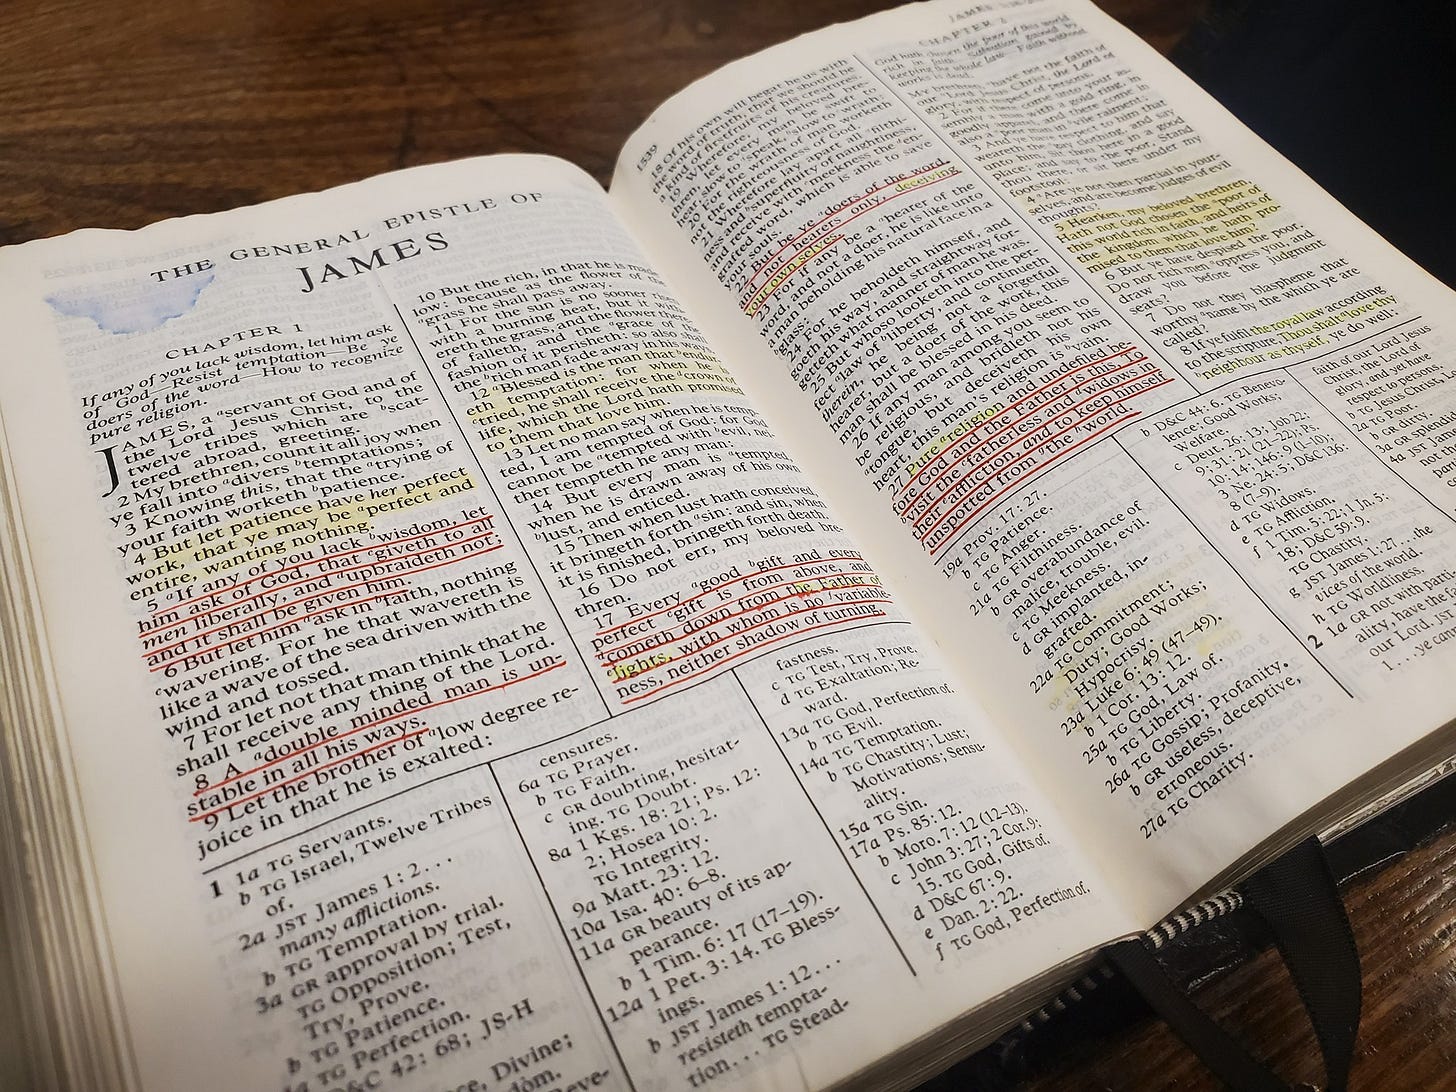 THE GENERAL EPISTLE OF
JAMES
CHAPTER 1
If any of you lack wisdom, let him ask
of God—Resist temptation—Be ye
doers of the word—How to recognize
pure religion.
JAMES, a servant of God and of
the Lord Jesus Christ, to the
twelve tribes which are scat-
tered abroad, greeting.
2 My brethren, count it all joy when
ye fall into divers temptations;
3 Knowing this, that the trying of
your faith worketh patience.
4 But let patience have her perfect
work, that ye may be perfect and
entire, wanting nothing.
5 If any of you lack wisdom, let
him ask of God, that giveth to all
men liberally, and upbraideth not;
and it shall be given him.
6 But let him ask in faith, nothing
wavering. For he that wavereth is
like a wave of the sea driven with the
wind and tossed.
7 For let not that man think that he
shall receive any thing of the Lord.
8 A double minded man is un-
stable in all his ways.
9 Let the brother of low degree re-
joice in that he is exalted:
10 But the rich, in that he is made
low: because as the flower of the
grass he shall pass away.
11 For the sun is no sooner risen
with a burning heat, but it with-
ereth the grass, and the flower thereof
falleth, and the grace of the
fashion of it perisheth: so also shall
the rich man fade away in his ways.
12 Blessed is the man that endur-
eth temptation: for when he is
tried, he shall receive the crown of
life, which the Lord hath promised
to them that love him.
13 Let no man say when he is temp-
ted, I am tempted of God: for God
cannot be tempted with evil, nei-
ther tempteth he any man:
14 But every man is tempted,
when he is drawn away of his own
lust, and enticed.
15 Then when lust hath conceived,
it bringeth forth sin: and sin, when
it is finished, bringeth forth death.
16 Do not err, my beloved breth-
thren.
17 Every good gift and every
perfect gift is from above, and
cometh down from the Father of
lights, with whom is no variable-
ness, neither shadow of turning.
1 1a TG Servants.
b TG Israel, Twelve Tribes
of.
2a JST James 1:2...
many afflictions.
b TG Temptation.
3a GR approval by trial.
TG Opposition; Test,
Try, Prove.
b TG Patience.
4a TG Perfection.
D&C 42:68; JS-H
Divine;
censures.
6a TG Prayer.
b TG Faith.
c GR doubting, hesitat-
ing. TG Doubt.
8a 1 Kgs. 18:21; Ps. 12:
2; Hosea 10:2.
TG Integrity.
9a Matt. 23:12.
10a Isa. 40:6–8.
11a GR beauty of its ap-
pearance.
b 1 Tim. 6:17 (17–19).
12a 1 Pet. 3:14. TG Bless-
ings.
b JST James 1:12...
resisteth tempta-
tion... TG Stead-
fastness.
c TG Test, Try, Prove.
d TG Exaltation; Re-
ward.
13a TG God, Perfection of.
b TG Evil.
14a TG Temptation.
b TG Chastity; Lust;
Motivations; Sensu-
ality.
15a TG Sin.
17a Ps. 85:12.
b Moro. 7:12 (12–13).
c John 3:27; 2 Cor. 9:
15. TG God, Gifts of.
d D&C 67:9.
e Dan. 2:22.
f TG God, Perfection of.
1539
18 Of his own will begat he us with
the word of truth, that we should be
a kind of firstfruits of his creatures.
19 Wherefore, my beloved breth-
ren, let every man be swift to
hear, slow to speak, slow to wrath:
20 For the wrath of man worketh
not the righteousness of God.
21 Wherefore lay apart all filthi-
ness and superfluity of naughtiness,
and receive with meekness the en-
grafted word, which is able to save
your souls.
22 But be ye doers of the word,
and not hearers only, deceiving
your own selves.
23 For if any be a hearer of the
word, and not a doer, he is like unto
a man beholding his natural face in a
glass:
24 For he beholdeth himself, and
goeth his way, and straightway for-
getteth what manner of man he was.
25 But whoso looketh into the per-
fect law of liberty, and continueth
therein, he being not a forgetful
hearer, but a doer of the work, this
man shall be blessed in his deed.
26 If any man among you seem to
be religious, and bridleth not his
tongue, but deceiveth his own
heart, this man's religion is vain.
27 Pure religion and undefiled be-
fore God and the Father is this, To
visit the fatherless and widows in
their affliction, and to keep himself
unspotted from the world.
19a Prov. 17:27.
b TG Patience.
c TG Anger.
21a TG Filthiness.
b GR overabundance of
malice, trouble, evil.
c TG Meekness.
d GR implanted, in-
grafted.
22a TG Commitment;
Duty; Good Works;
Hypocrisy.
23a Luke 6:49 (47–49).
b 1 Cor. 13:12.
25a TG God, Law of.
b TG Liberty.
26a TG Gossip; Profanity.
b GR useless, deceptive,
erroneous.
27a TG Charity.
JAMES
CHAPTER 2
God hath chosen the poor of this world
rich in faith—Salvation gained by
keeping the whole law—Faith without
works is dead.
My brethren, have not the faith of
our Lord Jesus Christ, the Lord of
glory, with respect of persons.
4 Are ye not then partial in your-
selves, and are become judges of evil
thoughts?
5 Hearken, my beloved brethren,
Hath not God chosen the poor of
this world rich in faith, and heirs of
the kingdom which he hath pro-
mised to them that love him?
6 But ye have despised the poor.
Do not rich men oppress you, and
draw you before the judgment
seats?
7 Do not they blaspheme that
worthy name by the which ye are
8 If ye fulfil the royal law according
to the scripture, Thou shalt love thy
neighbour as thyself, ye do well:
b D&C 44:6. TG Benevo-
lence; Good Works;
Welfare.
c Deut. 26:13; Job 22:
9; 31:21 (21–22); Ps.
10:14; 146:9 (1–10);
3 Ne. 24:5; D&C 136:
8 (7–9).
d TG Widows.
e TG Affliction.
f 1 Tim. 5:22; 1 Jn. 5:
18; D&C 59:9.
TG Chastity.
g JST James 1:27...the
vices of the world.
h TG Worldliness.
2 1a GR not with part
ality, have the
our Lord, Jes
1...ye can
faith of our Lord Jesus
Christ, the
glory, and yet
respect to persons
b TG Jesus Christ,
2a TG Poor.